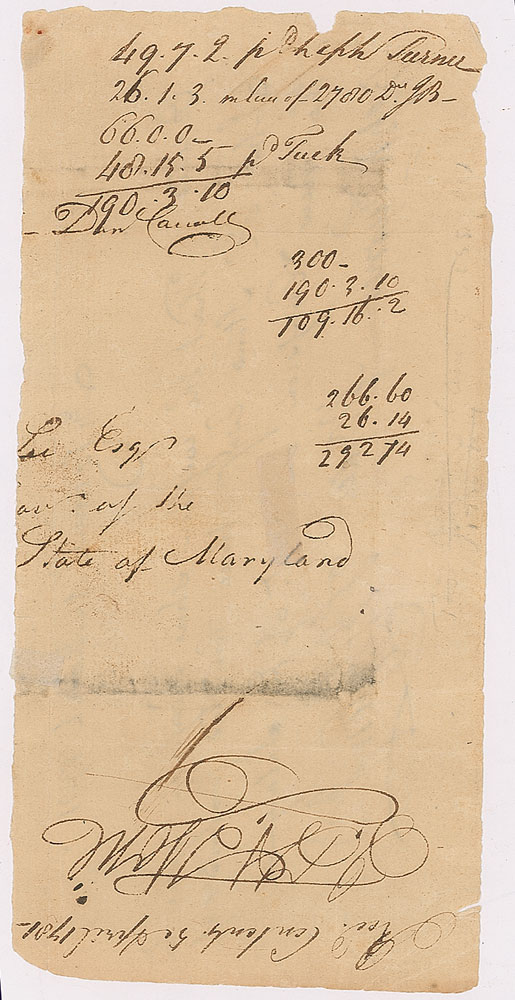 49.7.2. pd Turner
26.1.3. in lieu of 2780 Do JB-
66.0.0-
48.15.5 pd Tuck
190.3.10
- Dan Carroll
300-
190.3.10
109.16.2
266.60
26.14
29274
Lee Esqr
of the
State of Maryland
Recd Contents April 1781-